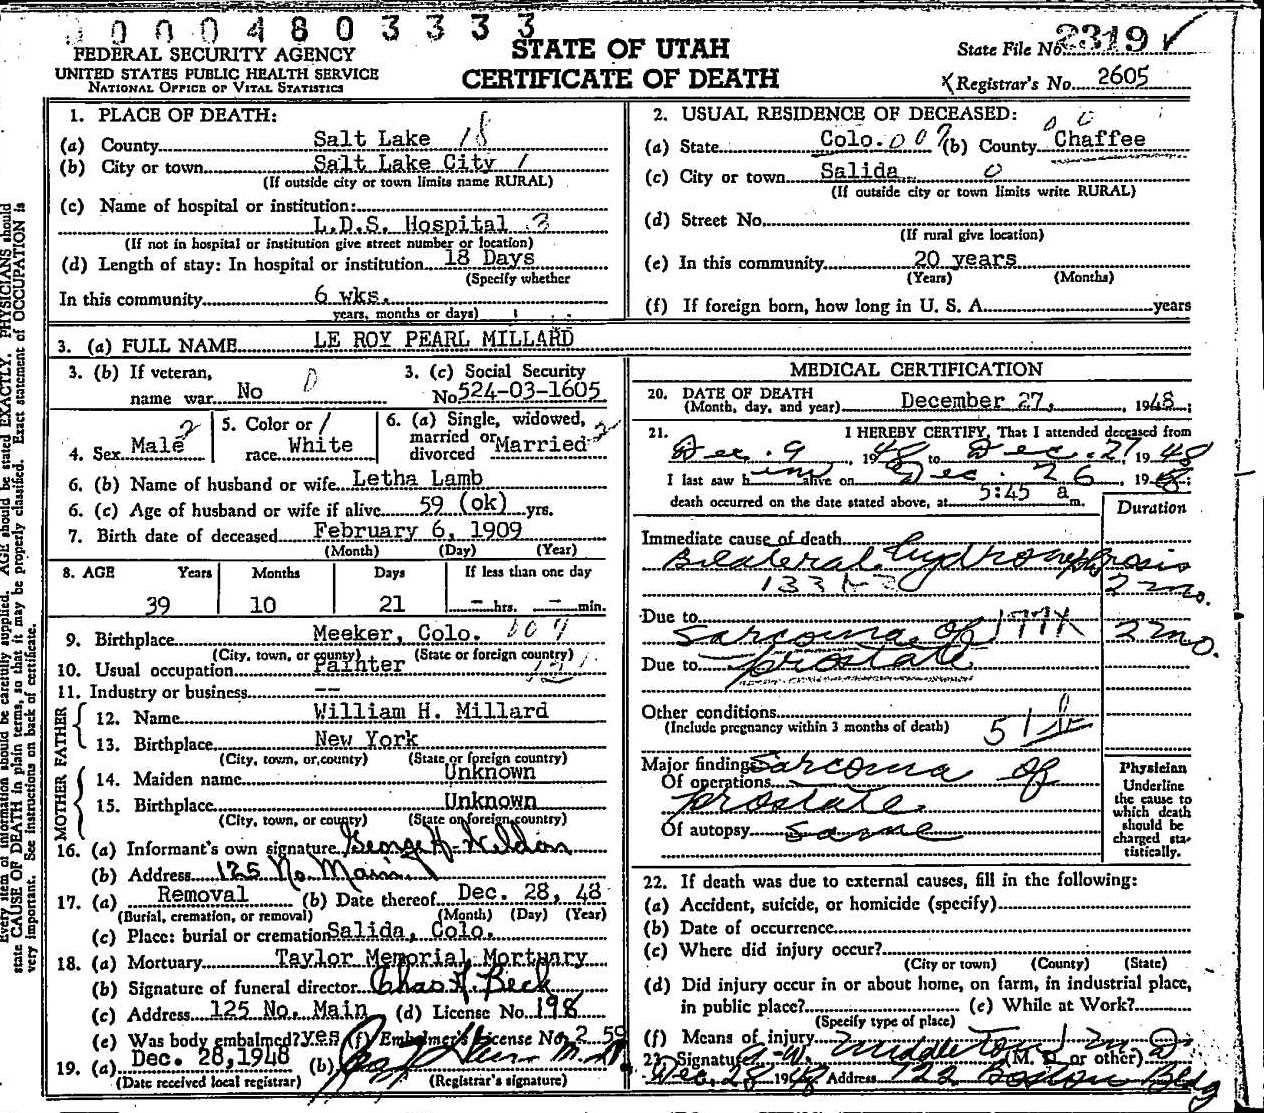 0 0 0 4 8 0 3 3 3 3
FEDERAL SECURITY AGENCY
UNITED STATES PUBLIC HEALTH SERVICE
NATIONAL OFFICE OF VITAL STATISTICS
STATE OF UTAH
CERTIFICATE OF DEATH
State File No. 2319 ✓
Registrar's No. 2605
1. PLACE OF DEATH:
(a) County Salt Lake 18
(b) City or town Salt Lake City 1
(If outside city or town limits name RURAL)
(c) Name of hospital or institution:
L.D.S. Hospital 3
(If not in hospital or institution give street number or location)
(d) Length of stay: In hospital or institution 18 Days
(Specify whether
In this community 6 wks.
years, months or days)
2. USUAL RESIDENCE OF DECEASED:
(a) State Colo. 007 (b) County Chaffee
(c) City or town Salida 0
(If outside city or town limits write RURAL)
(d) Street No.
(If rural give location)
(e) In this community 20 years
(Years) (Months)
(f) If foreign born, how long in U. S. A. years
3. (a) FULL NAME LE ROY PEARL MILLARD
3. (b) If veteran,
name war No 0
3. (c) Social Security
No. 524-03-1605
4. Sex Male 2
5. Color or /
race White
6. (a) Single, widowed,
married or
divorced Married 2
6. (b) Name of husband or wife Letha Lamb
6. (c) Age of husband or wife if alive 59 (ok) yrs.
7. Birth date of deceased February 6, 1909
(Month) (Day) (Year)
8. AGE Years Months Days If less than one day
39 10 21 -- hrs. -- min.
9. Birthplace Meeker, Colo. 007
(City, town, or county) (State or foreign country)
10. Usual occupation Painter
11. Industry or business --
FATHER
12. Name William H. Millard
13. Birthplace New York
(City, town, or county) (State or foreign country)
MOTHER
14. Maiden name Unknown
15. Birthplace Unknown
(City, town, or county) (State or foreign country)
16. (a) Informant's own signature George H. Weldon
(b) Address 125 No. Main
17. (a) Removal (b) Date thereof Dec. 28, 48
(Burial, cremation, or removal) (Month) (Day) (Year)
(c) Place: burial or cremation Salida, Colo.
18. (a) Mortuary Taylor Memorial Mortuary
(b) Signature of funeral director Chas A Beck
(c) Address 125 No. Main (d) License No. 198
(e) Was body embalmed? yes (f) Embalmer's License No. 259
19. (a) Dec. 28, 1948 (b) M.D.
(Date received local registrar) (Registrar's signature)
MEDICAL CERTIFICATION
20. DATE OF DEATH
(Month, day, and year) December 27, , 1948;
21. I HEREBY CERTIFY, That I attended deceased from
Dec. 9, 1948 to Dec. 27, 1948
I last saw him alive on Dec. 26, 1948;
death occurred on the date stated above, at 5:45 a m.
Duration
Immediate cause of death
Bilateral hydronephrosis
2 mo.
Due to
Sarcoma of 177X 2 mo.
Due to prostate
Other conditions
(Include pregnancy within 3 months of death)
Major findings Sarcoma of
Of operations
prostate
Of autopsy same
Physician
Underline
the cause to
which death
should be
charged sta-
tistically.
22. If death was due to external causes, fill in the following:
(a) Accident, suicide, or homicide (specify)
(b) Date of occurrence
(c) Where did injury occur?
(City or town) (County) (State)
(d) Did injury occur in or about home, on farm, in industrial place,
in public place? (e) While at Work?
(Specify type of place)
(f) Means of injury
23. Signature A. W. Middleton M.D.
(M. D. or other)
Dec. 28 1948 Address 722 Boston Bldg
Every item of information should be carefully supplied. AGE should be stated EXACTLY. PHYSICIANS should
state CAUSE OF DEATH in plain terms, so that it may be properly classified. Exact statement of OCCUPATION is
very important. See instructions on back of certificate.